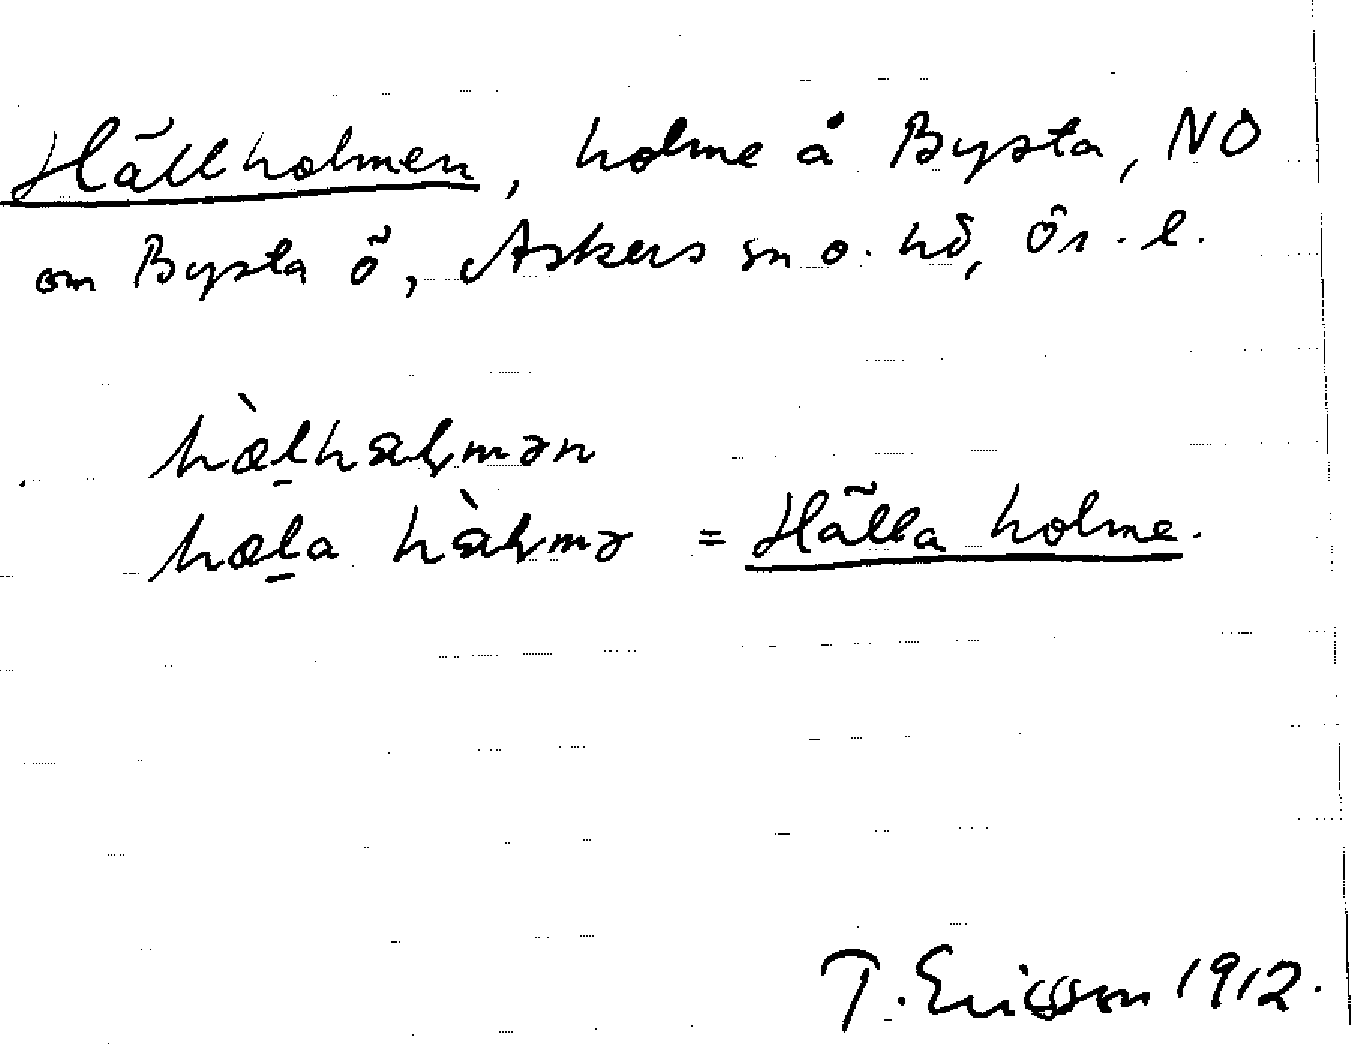 Hällholmen, holme å Bysta, NO
om Bysta ö, Askers sn o. hd, Ör. l.
hæ̀l̠hɑlmən
hæl̠a hɑ̀lmə = Hälla holme.
T. Ericsson 1912.